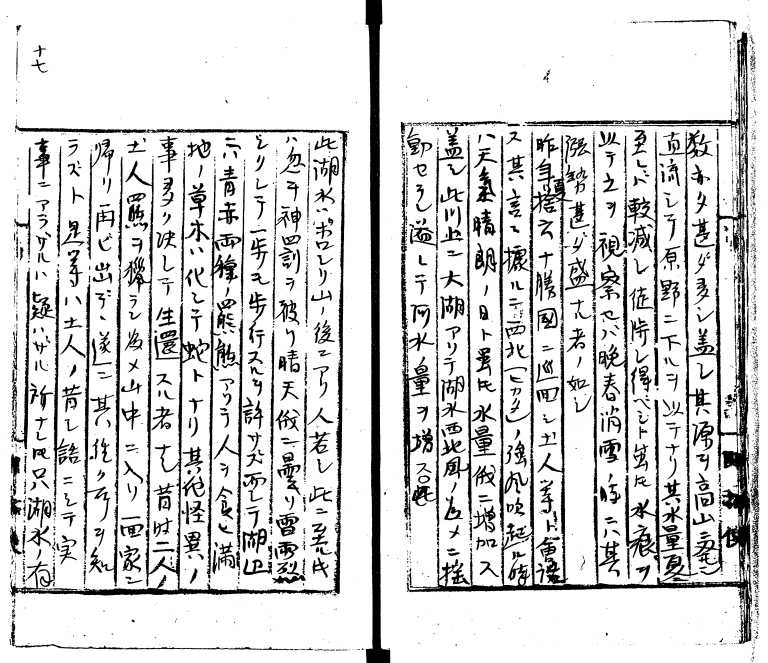 数亦タ甚ダ多シ盖シ其源ヲ高山ニ発シ
直流シテ原野ニ下ルヲ以テナリ其水量夏ニ
至レバ較減シ徒渉シ得ベシト虽𪜈水痕ヲ
以テ之ヲ視察セバ晩春消雪ノ時ニハ其
漲勢甚ダ盛ナル者ノ如シ
昨年夏捨云十勝國ニ巡回シ土人等ト會語
ス其言ニ據ルニ西北（ヒカタ）ノ強風吹起ル時
ハ天氣晴朗ノ日ト虽𪜈水量俄ニ増加ス
盖シ此川上ニ大湖アリテ湖水西北風ノ為メニ揺
動セラレ溢レテ河水ノ量ヲ増ス
十七
此湖水ハポロシリ山ノ後ニアリ人若シ此ニ至レバ
ハ忽チ神罰ヲ破リ晴天俄ニ曇リ雷雨烈
シクシテ一歩モ歩行スルヲ許サズ而シテ湖上
ニハ青赤両種ノ羆熊アリテ人ヲ食ヒ満
地ノ草木ハ化シテ蛇トナリ其他怪異ノ
事多ク決シテ生還スル者ナシ昔時二人ノ
土人羆ヲ獵ラン為メ山中ニ入リ一回家ニ
帰リ再ビ出デヽ遂ニ其終ル所ヲ知
ラズト是等ハ土人ノ昔シ語ニシテ実
事ニアラザルハ疑ハザル所ナレ𪜈只湖水ノ有